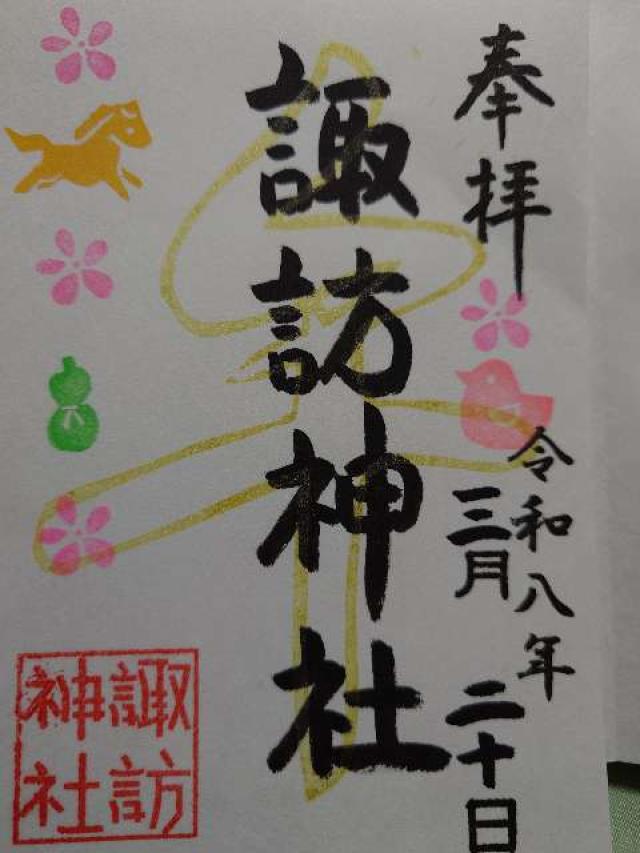 奉拝
令和八年
三月二十日
諏訪神社
諏訪
神社